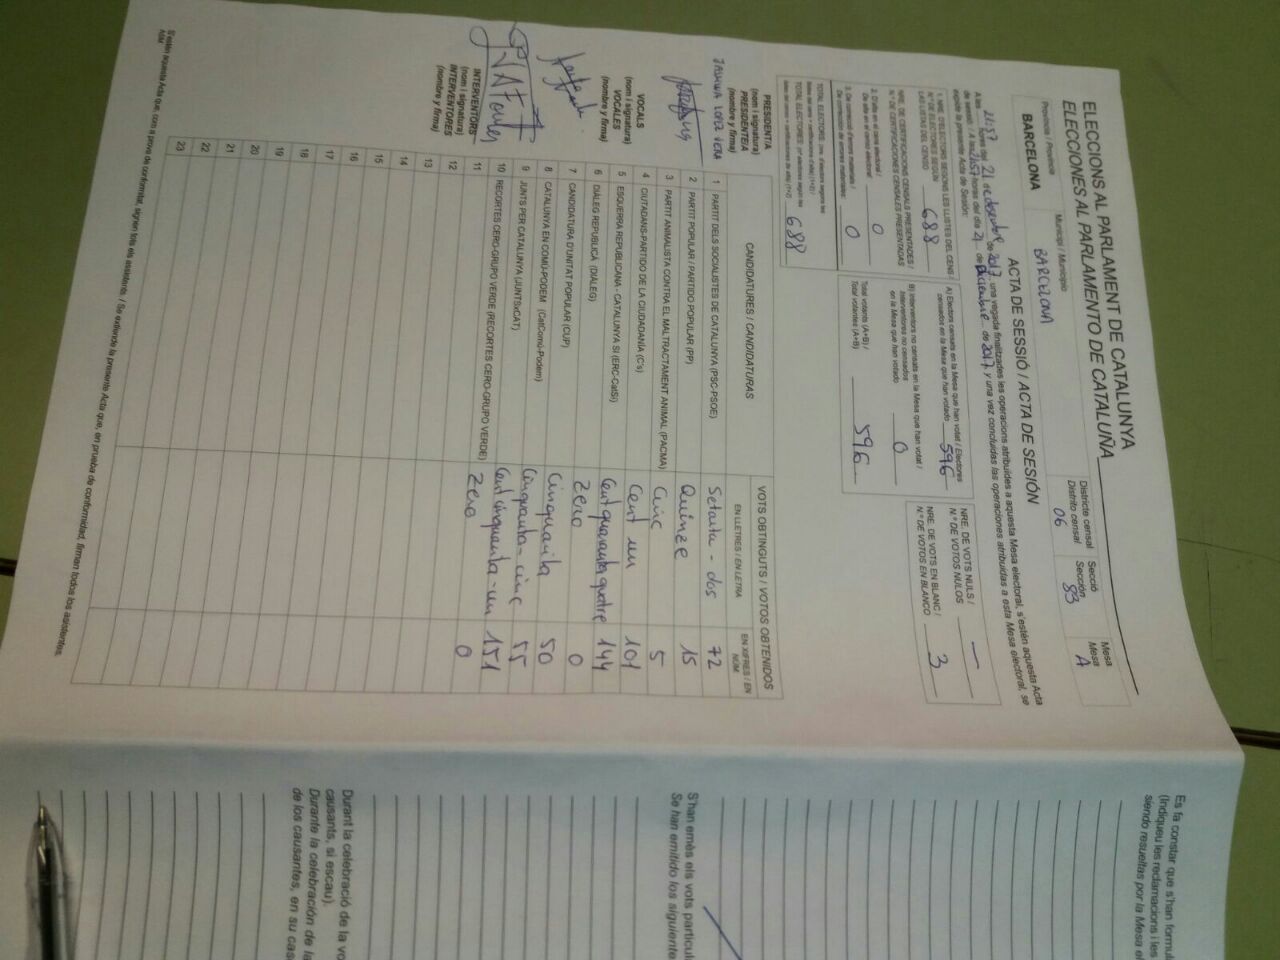 ELECCIONS AL PARLAMENT DE CATALUNYA
ELECCIONES AL PARLAMENTO DE CATALUÑA
Província / Provincia
BARCELONA
Municipi / Municipio
BARCELONA
Districte censal
Distrito censal
06
Secció
Sección
83
Mesa
Mesa
A
ACTA DE SESSIÓ / ACTA DE SESIÓN
A les 21:57 hores del 21 de desembre de 2017, una vegada finalitzades les operacions atribuïdes a aquesta Mesa electoral, s'estén aquesta Acta
de sessió. / A las 21:57 horas del día 21 de diciembre de 2017, y una vez concluidas las operaciones atribuidas a esta Mesa electoral, se
expide la presente Acta de Sesión:
1. NRE. D'ELECTORS SEGONS LES LLISTES DEL CENS /
N.º DE ELECTORES SEGÚN
LAS LISTAS DEL CENSO
688
NRE. DE CERTIFICACIONS CENSALS PRESENTADES /
N.º DE CERTIFICACIONES CENSALES PRESENTADAS
2. D'alta en el cens electoral /
De alta en el censo electoral:
0
3. De correcció d'errors materials /
De corrección de errores materiales:
0
688
A) Electors censats en la Mesa que han votat / Electores
censados en la Mesa que han votado
596
B) Interventors no censats en la Mesa que han votat /
Interventores no censados
en la Mesa que han votado
0
Total votants (A+B) /
Total votantes (A+B)
596
NRE. DE VOTS NULS /
N.º DE VOTOS NULOS
—
NRE. DE VOTS EN BLANC /
N.º DE VOTOS EN BLANCO
3
CANDIDATURES / CANDIDATURAS
VOTS OBTINGUTS / VOTOS OBTENIDOS
EN LLETRES / EN LETRA
EN XIFRES / EN NÚM.
1 PARTIT DELS SOCIALISTES DE CATALUNYA (PSC-PSOE) Setanta-dos 72
2 PARTIT POPULAR / PARTIDO POPULAR (PP) Quinze 15
3 PARTIT ANIMALISTA CONTRA EL MALTRACTAMENT ANIMAL (PACMA) Cinc 5
4 CIUTADANS-PARTIDO DE LA CIUDADANÍA (C's) Cent un 101
5 ESQUERRA REPUBLICANA - CATALUNYA SÍ (ERC-CatSí) Cent quaranta quatre 144
6 DIÀLEG REPUBLICÀ (DIÀLEG) Zero 0
7 CANDIDATURA D'UNITAT POPULAR (CUP) Cinquanta 50
8 CATALUNYA EN COMÚ-PODEM (CatComú-Podem) Cinquanta-cinc 55
9 JUNTS PER CATALUNYA (JUNTSxCAT) Cent cinquanta-un 151
10 RECORTES CERO-GRUPO VERDE (RECORTES CERO-GRUPO VERDE) Zero 0
11
12
13
14
15
16
17
18
19
20
21
22
23
PRESIDENT/A
(nom i signatura)
PRESIDENTE/A
(nombre y firma)
VOCALS
(nom i signatura)
VOCALES
(nombre y firma)
INTERVENTORS
(nom i signatura)
INTERVENTORES
(nombre y firma)
S'estén aquesta Acta que, com a prova de conformitat, signen tots els assistents. / Se extiende la presente Acta que, en prueba de conformidad, firman todos los asistentes.
Es fa constar que s'han formul
(Indiqueu les reclamacions i les
siendo resueltas por la Mesa el
S'han emès els vots particul
Se han emitido los siguiente
Durant la celebració de la vo
causants, si escau).
Durante la celebración de la
de los causantes, en su cas